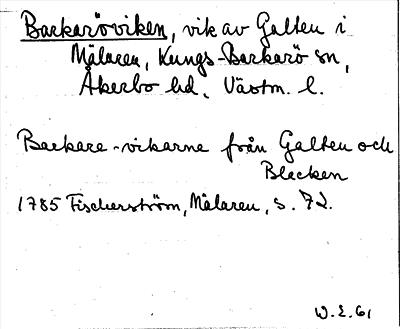 Barkaröviken, vik av Galten i
Mälaren, Kungs-Barkarö sn,
Åkerbo hd, Västm. l.
Barkare-vikarne från Galten och
Blacken
1785 Fischerström, Mälaren, s. 72.
W.E. 61